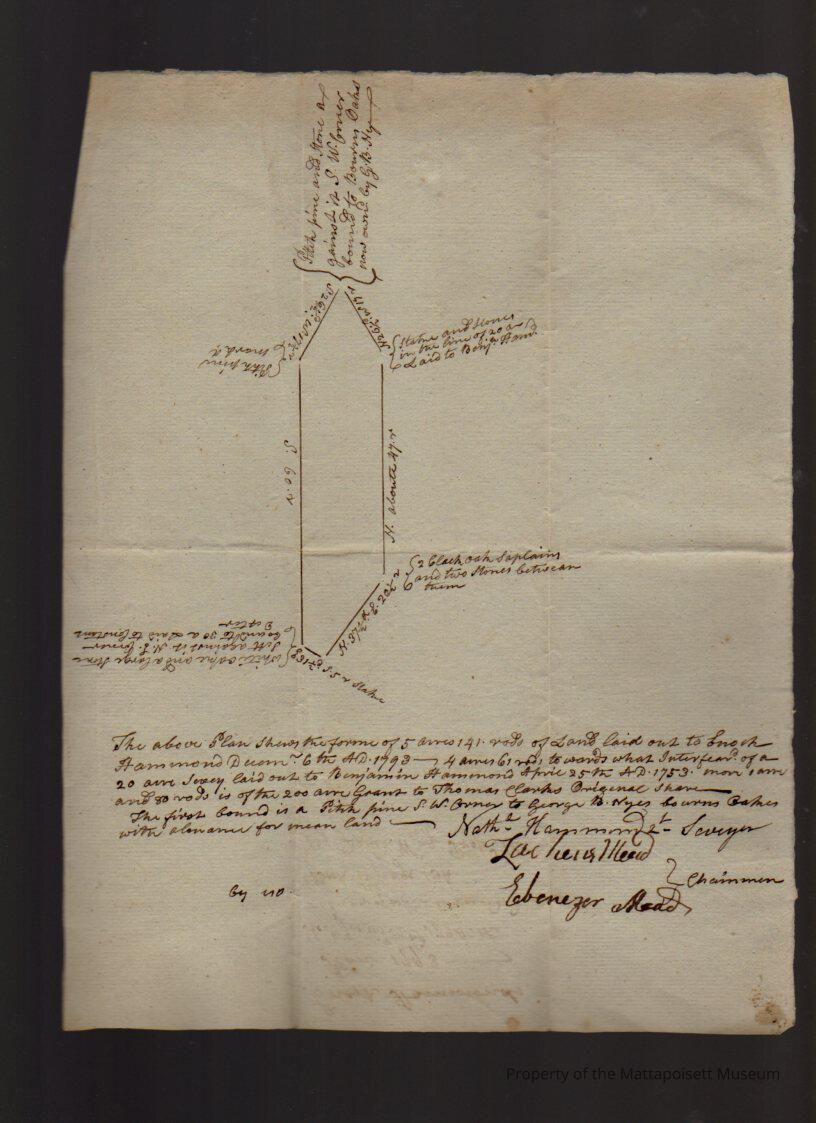 Pitch pine and Stone a
gainst it S W. Corner
bound to Bourns Oaks
now ownd by G. B. Nye
Pitch pine
markd
S. 60. r
Stake and Stones
in the line of 20 a
Laid to Benja Ham.
N. about 47. r
2 black oak Saplains
and two Stones between
them
S. 5 r Stake
white oake and a large Stone
against it N. E. Corner
bound to 50 a Laid to Constant
Dexter
The above Plan Shews the forme of 5 acres 141. rods of Land laid out to Enoch
Hammond Decemr. 6th A.D. 1793 — 4 acres 61 rods to wards what Interfeard. of a
20 acre Sevey laid out to Benjamin Hammond April 25th A.D. 1753. more 1 acre
and 80 rods is of the 200 acre Grant to Thomas Clarks Original Share
The first bound is a Pitch pine S. W. Corner to George B. Nyes bourns Oakes
with alowance for mean land — Nathl Hammond 2d Seveyer
Ebenezer Mead
Chainmen
by no.
Property of the Mattapoisett Museum